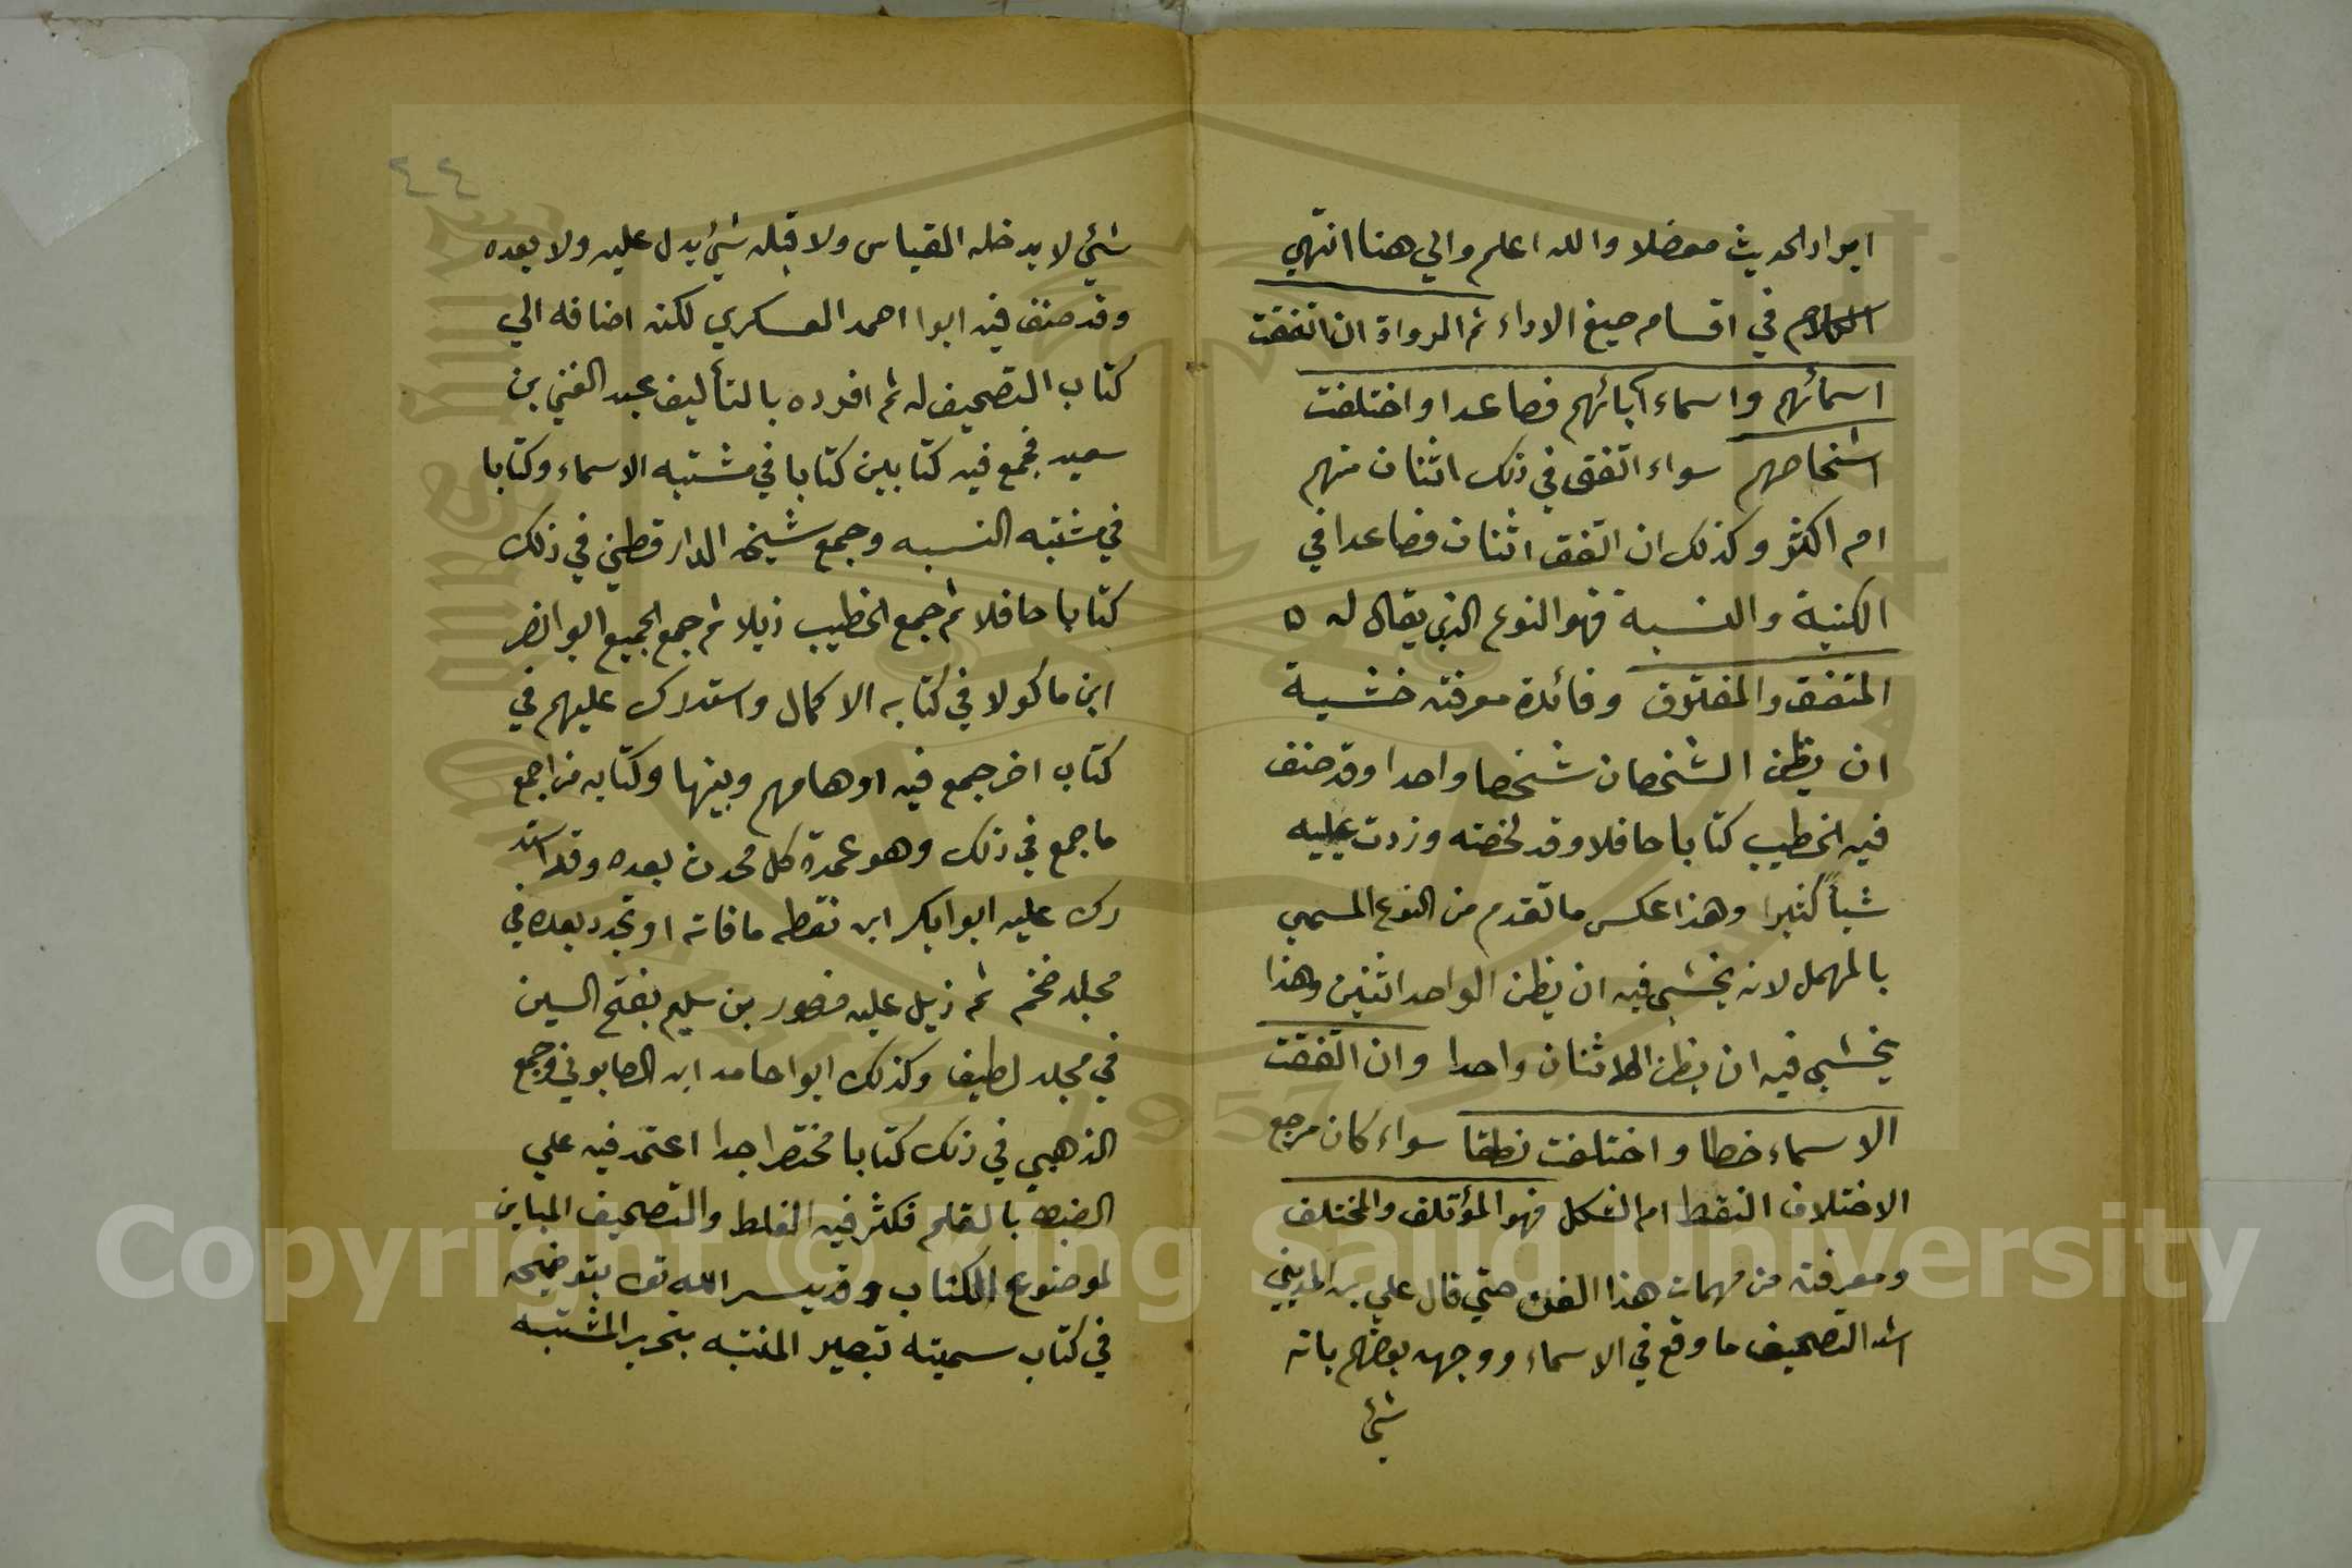 ايراد الحديث معضلا والله اعلم والي هنا انتهي
الكلام في اقسام صيغ الاداء ثم الرواة ان اتفقت
اسمائهم واسماء آبائهم فصاعدا واختلفت
اشخاصهم سواء اتفق في ذلك اثنان منهم
ام اكثر وكذلك ان اتفق اثنان فصاعدا في
الكنية والنسبة فهو النوع الذي يقال له ه
المتفق والمفترق وفائدة معرفته خشية
ان يظن الشخصان شخصا واحدا وقد صنف
فيه الخطيب كتابا حافلا وقد لخصته وزدت عليه
شيأ كثيرا وهذا عكس ما تقدم من النوع المسمي
بالمهمل لانه يخشي فيه ان يظن الواحد اثنين وهذا
يخشي فيه ان يظن الاثنان واحدا وان اتفقت
الاسماء خطا واختلفت نطقا سواء كان مرجع
الاختلاف النقط ام الشكل فهو المؤتلف والمختلف
ومعرفته من مهمات هذا الفن حتي قال علي بن المديني
اشد التصحيف ما وقع في الاسماء ووجهه بعضهم بانه
شئ
٤٤
شئ لا يدخله القياس ولا قبله شئ يدل عليه ولا بعده
وقد صنف فيه ابوا احمد العسكري لكنه اضافه الي
كتاب التصحيف له ثم افرده بالتأليف عبد الغني بن
سعيد فجمع فيه كتابين كتابا في مشتبه الاسماء وكتابا
في مشتبه النسبه وجمع شيخه الدارقطني في ذلك
كتابا حافلا ثم جمع الخطيب ذيلا ثم جمع الجميع ابو انصر
ابن ماكولا في كتابه الاكمال واستدرك عليهم في
كتاب اخر جمع فيه اوهامهم وبينها وكتابه من اجمع
ما جمع في ذلك وهو عمدة كل محدث بعده وقد استد
رك عليه ابوا بكر ابن نقطه ما فاته او تجدد بعده في
مجلد ضخم ثم ذيل عليه منصور بن سليم بفتح السين
في مجلد لطيف وكذلك ابوا حامد ابن الصابوني وجمع
الذهبي في ذلك كتابا مختصرا جدا اعتمد فيه علي
الضبط بالقلم فكثر فيه الغلط والتصحيف المباين
لموضوع الكتاب وقد يسر الله تع بتوضيحه
في كتاب سميته تبصير المنتبه بتحرير المشتبه
Copyright © King Saud University
1957